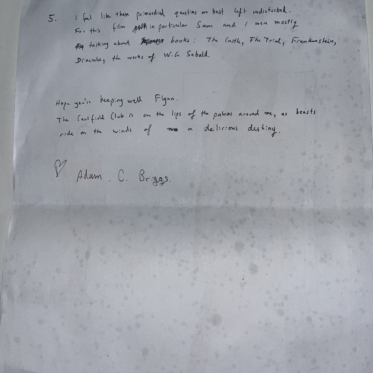 5. I feel like these primordial questions are best left undisturbed.
For this film in particular Sam and I were mostly
talking about books: The Castle, The Trial, Frankenstein,
Dracula, the works of W.G Sebald.
Hope you're keeping well Flynn.
The Caulfield Club is on the lips of the patrons around me, as beasts
ride on the winds of a delicious destiny.
♡ Adam. C. Briggs.